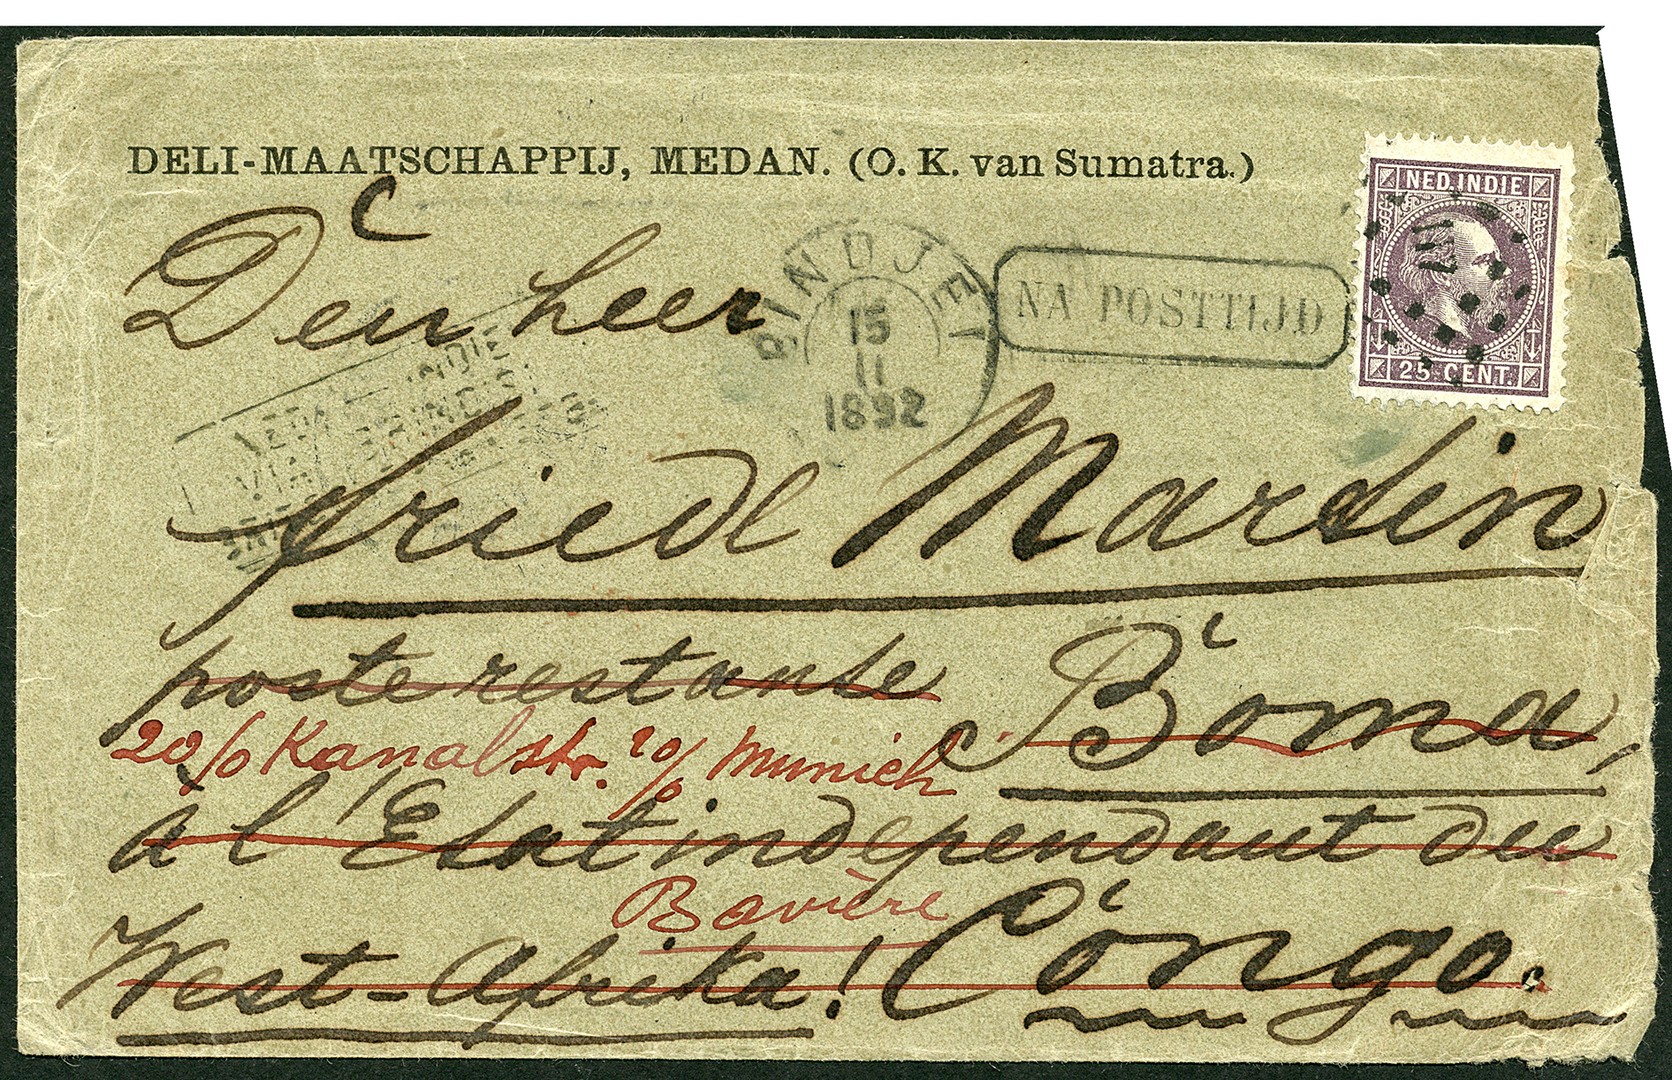 DELI-MAATSCHAPPIJ, MEDAN. (O. K. van Sumatra.)
NED. INDIE
25 CENT.
BINDJEI
15
11
1892
NA POSTTIJD
Den heer
NED. INDIE
VIA BRINDISI
friedl Mardin
poste restante Boma,
20/0 Kanalstr. 20/0 Munich
à l'Etat indépendant du
Bavière
West-Afrika! Congo.